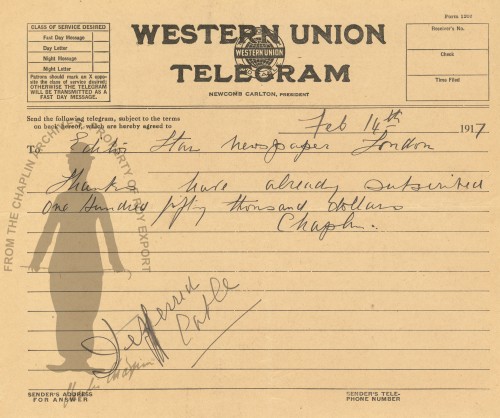 Form 1207
CLASS OF SERVICE DESIRED
Fast Day Message
Day Letter
Night Message
Night Letter
Patrons should mark an X opposite the class of service desired; OTHERWISE THE TELEGRAM WILL BE TRANSMITTED AS A FAST DAY MESSAGE.
WESTERN UNION
WESTERN UNION
TELEGRAM
NEWCOMB CARLTON, PRESIDENT
Receiver's No.
Check
Time Filed
Send the following telegram, subject to the terms
on back hereof, which are hereby agreed to
Feb 14th 1917
To Editor Star Newspaper London
Thanks have already subscribed
one hundred fifty thousand dollars
Chaplin.
Deferred
Cable
FROM THE CHAPLIN ARCHIVES PROPERTY OF ROY EXPORT
Charlie Chaplin
SENDER'S ADDRESS
FOR ANSWER
SENDER'S TELE-
PHONE NUMBER